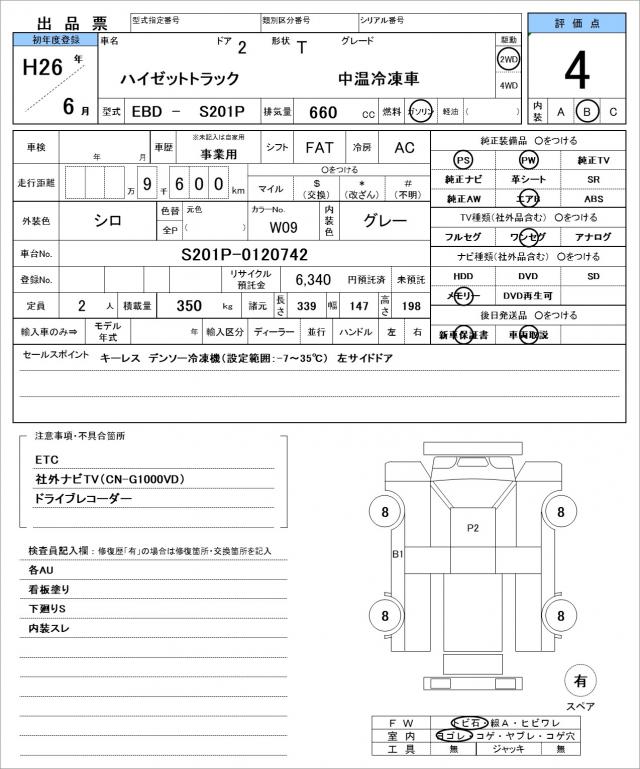 出品票 型式指定番号 類別区分番号 シリアル番号 評価点
初年度登録 車名 ドア 2 形状 T グレード 駆動
H26 年 ハイゼットトラック 中温冷凍車 2WD 4
6 月 4WD
型式 EBD － S201P 排気量 660 cc 燃料 ガソリン 軽油 ( ) 内装 A B C
車検 年 月 車歴 ※未記入は自家用 事業用 シフト FAT 冷房 AC 純正装備品 〇をつける
PS PW 純正TV
走行距離 万 9 千 6 0 0 km 〇をつける 純正ナビ 革シート SR
マイル $ (交換) * (改ざん) # (不明) 純正AW エアB ABS
外装色 シロ 色替 元色 カラーNo. 内装色 グレー TV種類(社外品含む) 〇をつける
全P ( ) W09 フルセグ ワンセグ アナログ
車台No. S201P-0120742 ナビ種類(社外品含む) 〇をつける
登録No. リサイクル預託金 6,340 円預託済 未預託 HDD DVD SD
定員 2 人 積載量 350 kg 諸元 長さ 339 幅 147 高さ 198 メモリー DVD再生可
後日発送品 〇をつける
輸入車のみ⇒ モデル年式 年 輸入区分 ディーラー 並行 ハンドル 左 右 新車保証書 車両取説
セールスポイント キーレス デンソー冷凍機(設定範囲:-7～35℃) 左サイドドア
注意事項・不具合箇所
ETC
社外ナビTV(CN-G1000VD)
ドライブレコーダー
検査員記入欄 : 修復歴「有」の場合は修復箇所・交換箇所を記入
各AU
看板塗り
下廻りS
内装スレ
8 8
P2
B1
8 8
有
スペア
FW トビ石・線A・ヒビワレ
室内 ヨゴレ・コゲ・ヤブレ・コゲ穴
工具 無 ジャッキ 無